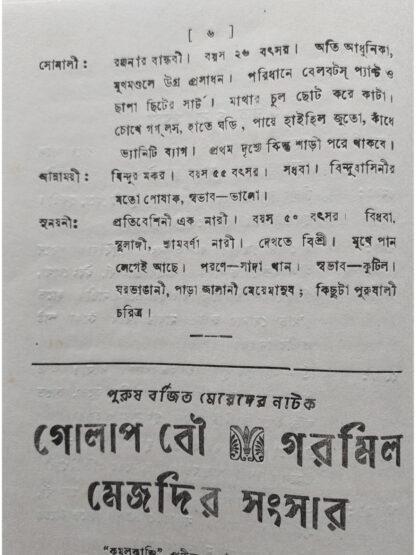 [ ৬ ]
সোনালী : রঞ্জনার বান্ধবী । বয়স ২৬ বৎসর । অতি আধুনিকা,
মুখমণ্ডলে উগ্র প্রসাধন । পরিধানে বেলবটস্ প্যান্ট ও
ছাপা ছিটের সার্ট । মাথার চুল ছোট করে কাটা ।
চোখে গগলস, হাতে ঘড়ি, পায়ে হাইহিল জুতো, কাঁধে
ভ্যানিটি ব্যাগ । প্রথম দৃশ্যে কিন্তু শাড়ী পরে থাকবে ।
আন্নাময়ী : বিন্দুর মকর । বয়স ৫৫ বৎসর । সধবা । বিন্দুবাসিনীর
মতো পোষাক, স্বভাব—ভালো ।
সুনয়নী : প্রতিবেশিনী এক নারী । বয়স ৫০ বৎসর । বিধবা,
স্থূলাঙ্গী, শ্যামবর্ণা নারী । দেখতে বিশ্রী । মুখে পান
লেগেই আছে । পরণে—সাদা থান । স্বভাব—কুটিল ।
ঘরভাঙানী, পাড়া জালানী মেয়েমানুষ ; কিছুটা পুরুষালী
চরিত্র ।
পুরুষ বর্জিত মেয়েদের নাটক
গোলাপ বৌ গরমিল
মেজদির সংসার